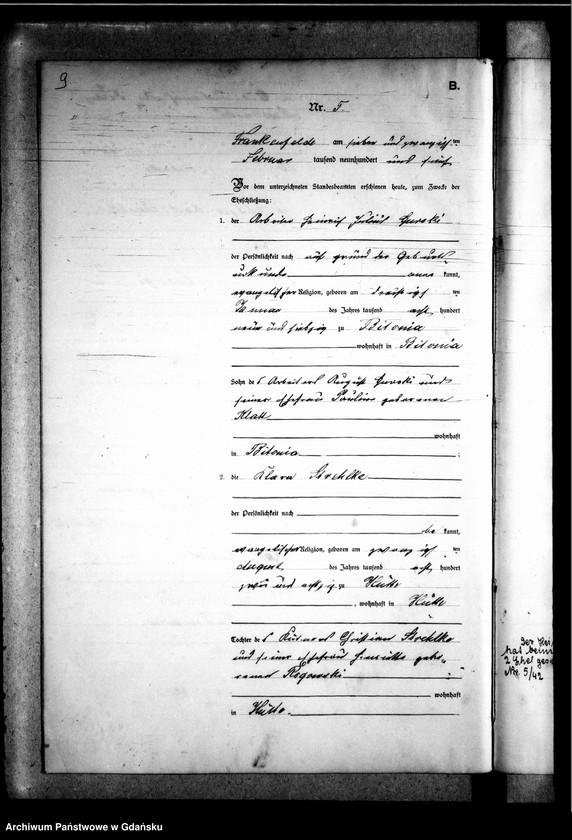 9
B.
Nr. 5.
Frankenfelde am sieben und zwanzig ten
Februar tausend neunhundert und fünf
Vor dem unterzeichneten Standesbeamten erschienen heute, zum Zwecke der
Eheschließung:
1. der Arbeiter Heinrich Gurski
der Persönlichkeit nach auf Grund der Geburts
urkunde aner kannt,
evangelischer Religion, geboren am dreißigs ten
Januar des Jahres tausend acht hundert
neun und siebzig zu Bitonia
wohnhaft in Bitonia
Sohn des Arbeiters August Gurski und
seiner Ehefrau Pauline geborenen
Klatt
wohnhaft
in Bitonia ;
2. die Klara Strehlke
der Persönlichkeit nach
be kannt,
evangelischer Religion, geboren am zwanzigs ten
August des Jahres tausend acht hundert
zwei und achtzig zu Hütte
, wohnhaft in Hütte
Tochter des Christian Strehlke
und seiner Ehefrau Henriette gebo-
renen Rogowski
wohnhaft
in Hütte.
hat beim
2 Ehe
Nr. 5/42
Archiwum Państwowe w Gdańsku